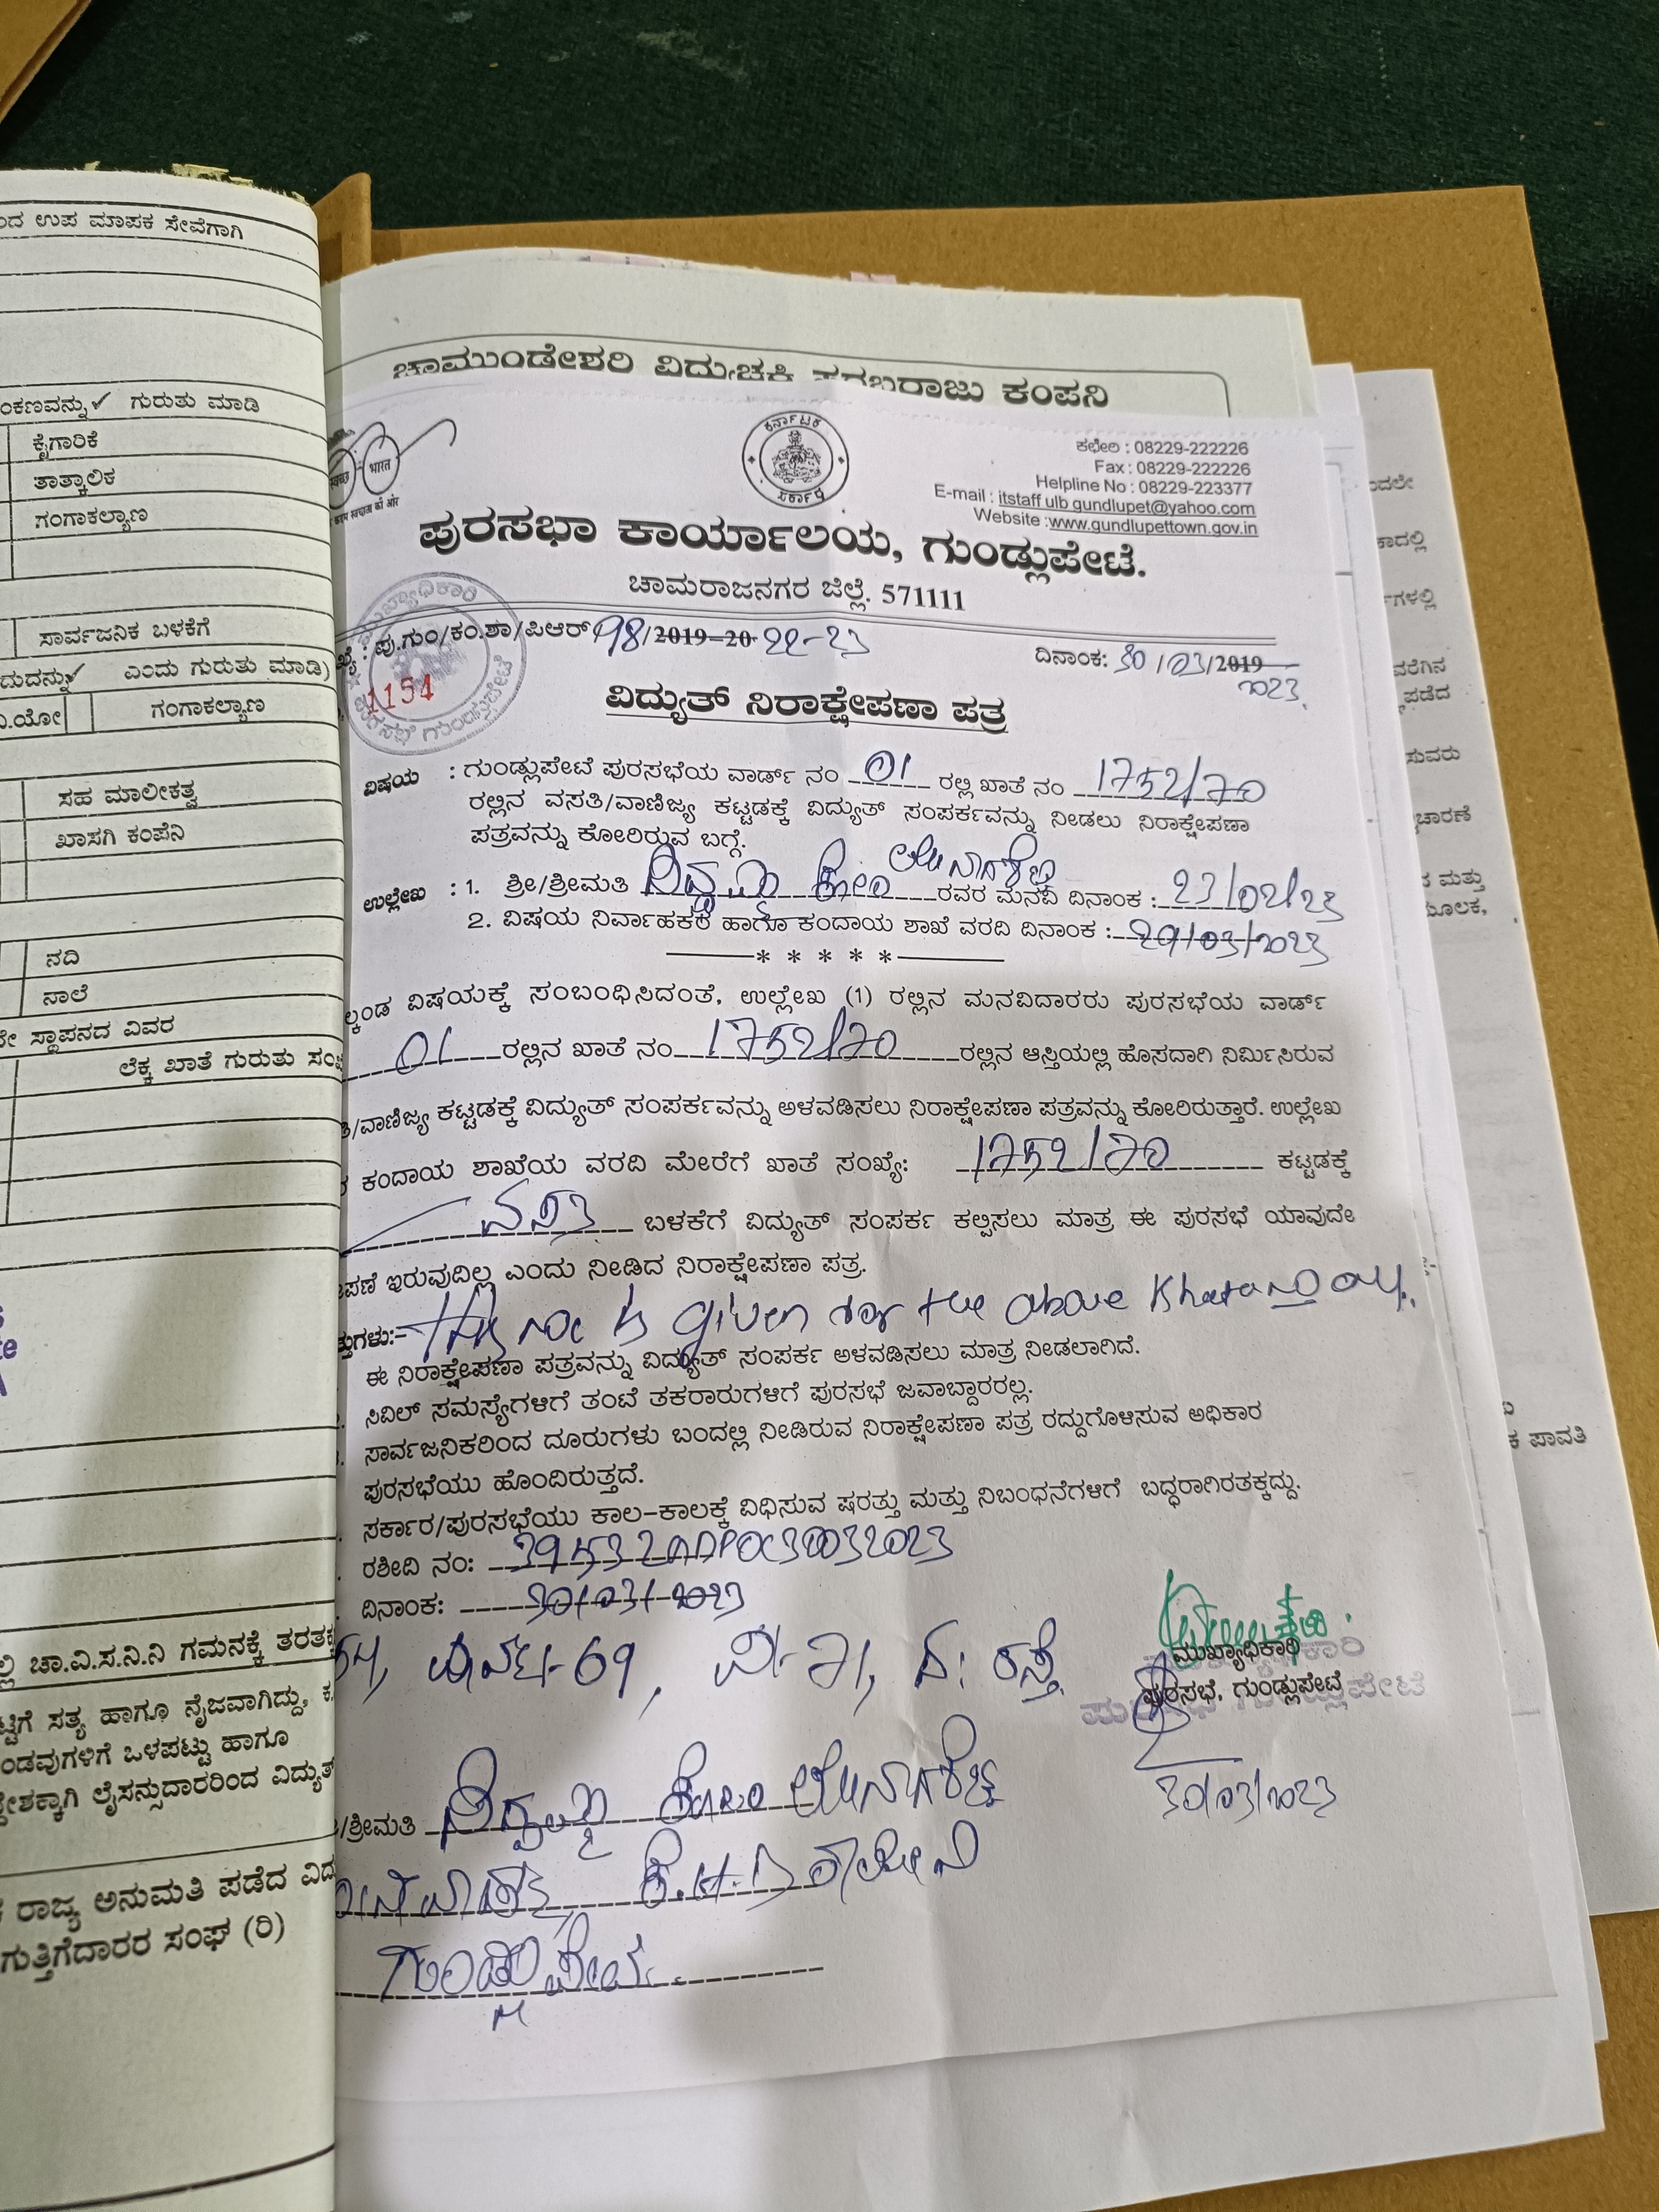 ಂದ ಉಪ ಮಾಪಕ ಸೇವೆಗಾಗಿ
ಂಕಣವನ್ನು ✓ ಗುರುತು ಮಾಡಿ
ಕೈಗಾರಿಕೆ
ತಾತ್ಕಾಲಿಕ
ಗಂಗಾಕಲ್ಯಾಣ
ಸಾರ್ವಜನಿಕ ಬಳಕೆಗೆ
ದುದನ್ನು ✓ ಎಂದು ಗುರುತು ಮಾಡಿ)
ವಿ.ಯೋ ಗಂಗಾಕಲ್ಯಾಣ
ಸಹ ಮಾಲೀಕತ್ವ
ಖಾಸಗಿ ಕಂಪೆನಿ
ನದಿ
ನಾಲೆ
ಸ್ಥಾಪನದ ವಿವರ
ಲೆಕ್ಕ ಖಾತೆ ಗುರುತು ಸಂಖ
ಲ್ಲಿ ಚಾ.ವಿ.ಸ.ನಿ.ನಿ ಗಮನಕ್ಕೆ ತರತಕ್ಕ
ಟ್ಟಿಗೆ ಸತ್ಯ ಹಾಗೂ ನೈಜವಾಗಿದ್ದು,
ಂಡವುಗಳಿಗೆ ಒಳಪಟ್ಟು ಹಾಗೂ
ದೇಶಕ್ಕಾಗಿ ಲೈಸನ್ಸುದಾರರಿಂದ ವಿದ್ಯುತ್
ರಾಜ್ಯ ಅನುಮತಿ ಪಡೆದ ವಿದ
ಗುತ್ತಿಗೆದಾರರ ಸಂಘ (ರಿ)
ಚಾಮುಂಡೇಶ್ವರಿ ವಿದ್ಯುಚ್ಛಕ್ತಿ ಸರಬರಾಜು ಕಂಪನಿ
ಕರ್ನಾಟಕ ಸರ್ಕಾರ
भारत
ಕಛೇರಿ : 08229-222226
Fax : 08229-222226
Helpline No : 08229-223377
E-mail : itstaff ulb gundlupet@yahoo.com
Website :www.gundlupettown.gov.in
ಪುರಸಭಾ ಕಾರ್ಯಾಲಯ, ಗುಂಡ್ಲುಪೇಟೆ.
ಚಾಮರಾಜನಗರ ಜಿಲ್ಲೆ. 571111
ಪು.ಗುಂ/ಕಂ.ಶಾ/ಪಿಆರ್ 98/2019-20 22-23 ದಿನಾಂಕ: 30/03/2019
2023
1154
ವಿದ್ಯುತ್ ನಿರಾಕ್ಷೇಪಣಾ ಪತ್ರ
ವಿಷಯ : ಗುಂಡ್ಲುಪೇಟೆ ಪುರಸಭೆಯ ವಾರ್ಡ್ ನಂ 01 ರಲ್ಲಿ ಖಾತೆ ನಂ 1752/70
ರಲ್ಲಿನ ವಸತಿ/ವಾಣಿಜ್ಯ ಕಟ್ಟಡಕ್ಕೆ ವಿದ್ಯುತ್ ಸಂಪರ್ಕವನ್ನು ನೀಡಲು ನಿರಾಕ್ಷೇಪಣಾ
ಪತ್ರವನ್ನು ಕೋರಿರುವ ಬಗ್ಗೆ.
ಉಲ್ಲೇಖ : 1. ಶ್ರೀ/ಶ್ರೀಮತಿ ಕೋಂ ರವರ ಮನವಿ ದಿನಾಂಕ : 23/02/23
2. ವಿಷಯ ನಿರ್ವಾಹಕರ ಹಾಗೂ ಕಂದಾಯ ಶಾಖೆ ವರದಿ ದಿನಾಂಕ : 29/03/2023
* * * * *
ಲ್ಕಂಡ ವಿಷಯಕ್ಕೆ ಸಂಬಂಧಿಸಿದಂತೆ, ಉಲ್ಲೇಖ (1) ರಲ್ಲಿನ ಮನವಿದಾರರು ಪುರಸಭೆಯ ವಾರ್ಡ್
01 ರಲ್ಲಿನ ಖಾತೆ ನಂ 1752/70 ರಲ್ಲಿನ ಆಸ್ತಿಯಲ್ಲಿ ಹೊಸದಾಗಿ ನಿರ್ಮಿಸಿರುವ
ತಿ/ವಾಣಿಜ್ಯ ಕಟ್ಟಡಕ್ಕೆ ವಿದ್ಯುತ್ ಸಂಪರ್ಕವನ್ನು ಅಳವಡಿಸಲು ನಿರಾಕ್ಷೇಪಣಾ ಪತ್ರವನ್ನು ಕೋರಿರುತ್ತಾರೆ. ಉಲ್ಲೇಖ
ಕಂದಾಯ ಶಾಖೆಯ ವರದಿ ಮೇರೆಗೆ ಖಾತೆ ಸಂಖ್ಯೆ: 1752/70 ಕಟ್ಟಡಕ್ಕೆ
ವಸತಿ ಬಳಕೆಗೆ ವಿದ್ಯುತ್ ಸಂಪರ್ಕ ಕಲ್ಪಿಸಲು ಮಾತ್ರ ಈ ಪುರಸಭೆ ಯಾವುದೇ
ಪಣೆ ಇರುವುದಿಲ್ಲ ಎಂದು ನೀಡಿದ ನಿರಾಕ್ಷೇಪಣಾ ಪತ್ರ.
ತ್ತುಗಳು:- This noc is given for the above Khata no only.
ಈ ನಿರಾಕ್ಷೇಪಣಾ ಪತ್ರವನ್ನು ವಿದ್ಯುತ್ ಸಂಪರ್ಕ ಅಳವಡಿಸಲು ಮಾತ್ರ ನೀಡಲಾಗಿದೆ.
ಸಿವಿಲ್ ಸಮಸ್ಯೆಗಳಿಗೆ ತಂಟೆ ತಕರಾರುಗಳಿಗೆ ಪುರಸಭೆ ಜವಾಬ್ದಾರರಲ್ಲ.
ಸಾರ್ವಜನಿಕರಿಂದ ದೂರುಗಳು ಬಂದಲ್ಲಿ ನೀಡಿರುವ ನಿರಾಕ್ಷೇಪಣಾ ಪತ್ರ ರದ್ದುಗೊಳಿಸುವ ಅಧಿಕಾರ
ಪುರಸಭೆಯು ಹೊಂದಿರುತ್ತದೆ.
ಸರ್ಕಾರ/ಪುರಸಭೆಯು ಕಾಲ-ಕಾಲಕ್ಕೆ ವಿಧಿಸುವ ಷರತ್ತು ಮತ್ತು ನಿಬಂಧನೆಗಳಿಗೆ ಬದ್ಧರಾಗಿರತಕ್ಕದ್ದು.
ರಶೀದಿ ನಂ:
ದಿನಾಂಕ: 30/03/2023
ರಸ್ತೆ
ಮುಖ್ಯಾಧಿಕಾರಿ
ಪುರಸಭೆ, ಗುಂಡ್ಲುಪೇಟೆ
30/03/2023
/ಶ್ರೀಮತಿ ಕೋಂ
ಕೆ.ಹೆಚ್.ಬಿ ಕಾಲೋನಿ
ಗುಂಡ್ಲುಪೇಟೆ
ಂದಲೇ
ಕಾದಲ್ಲಿ
ಗಳಲ್ಲಿ
ವರೆಗಿನ
ಪಡೆದ
ಸುವರು
ಚಾರಣೆ
ಮತ್ತು
ಮೂಲಕ,
ಕ ಪಾವತಿ